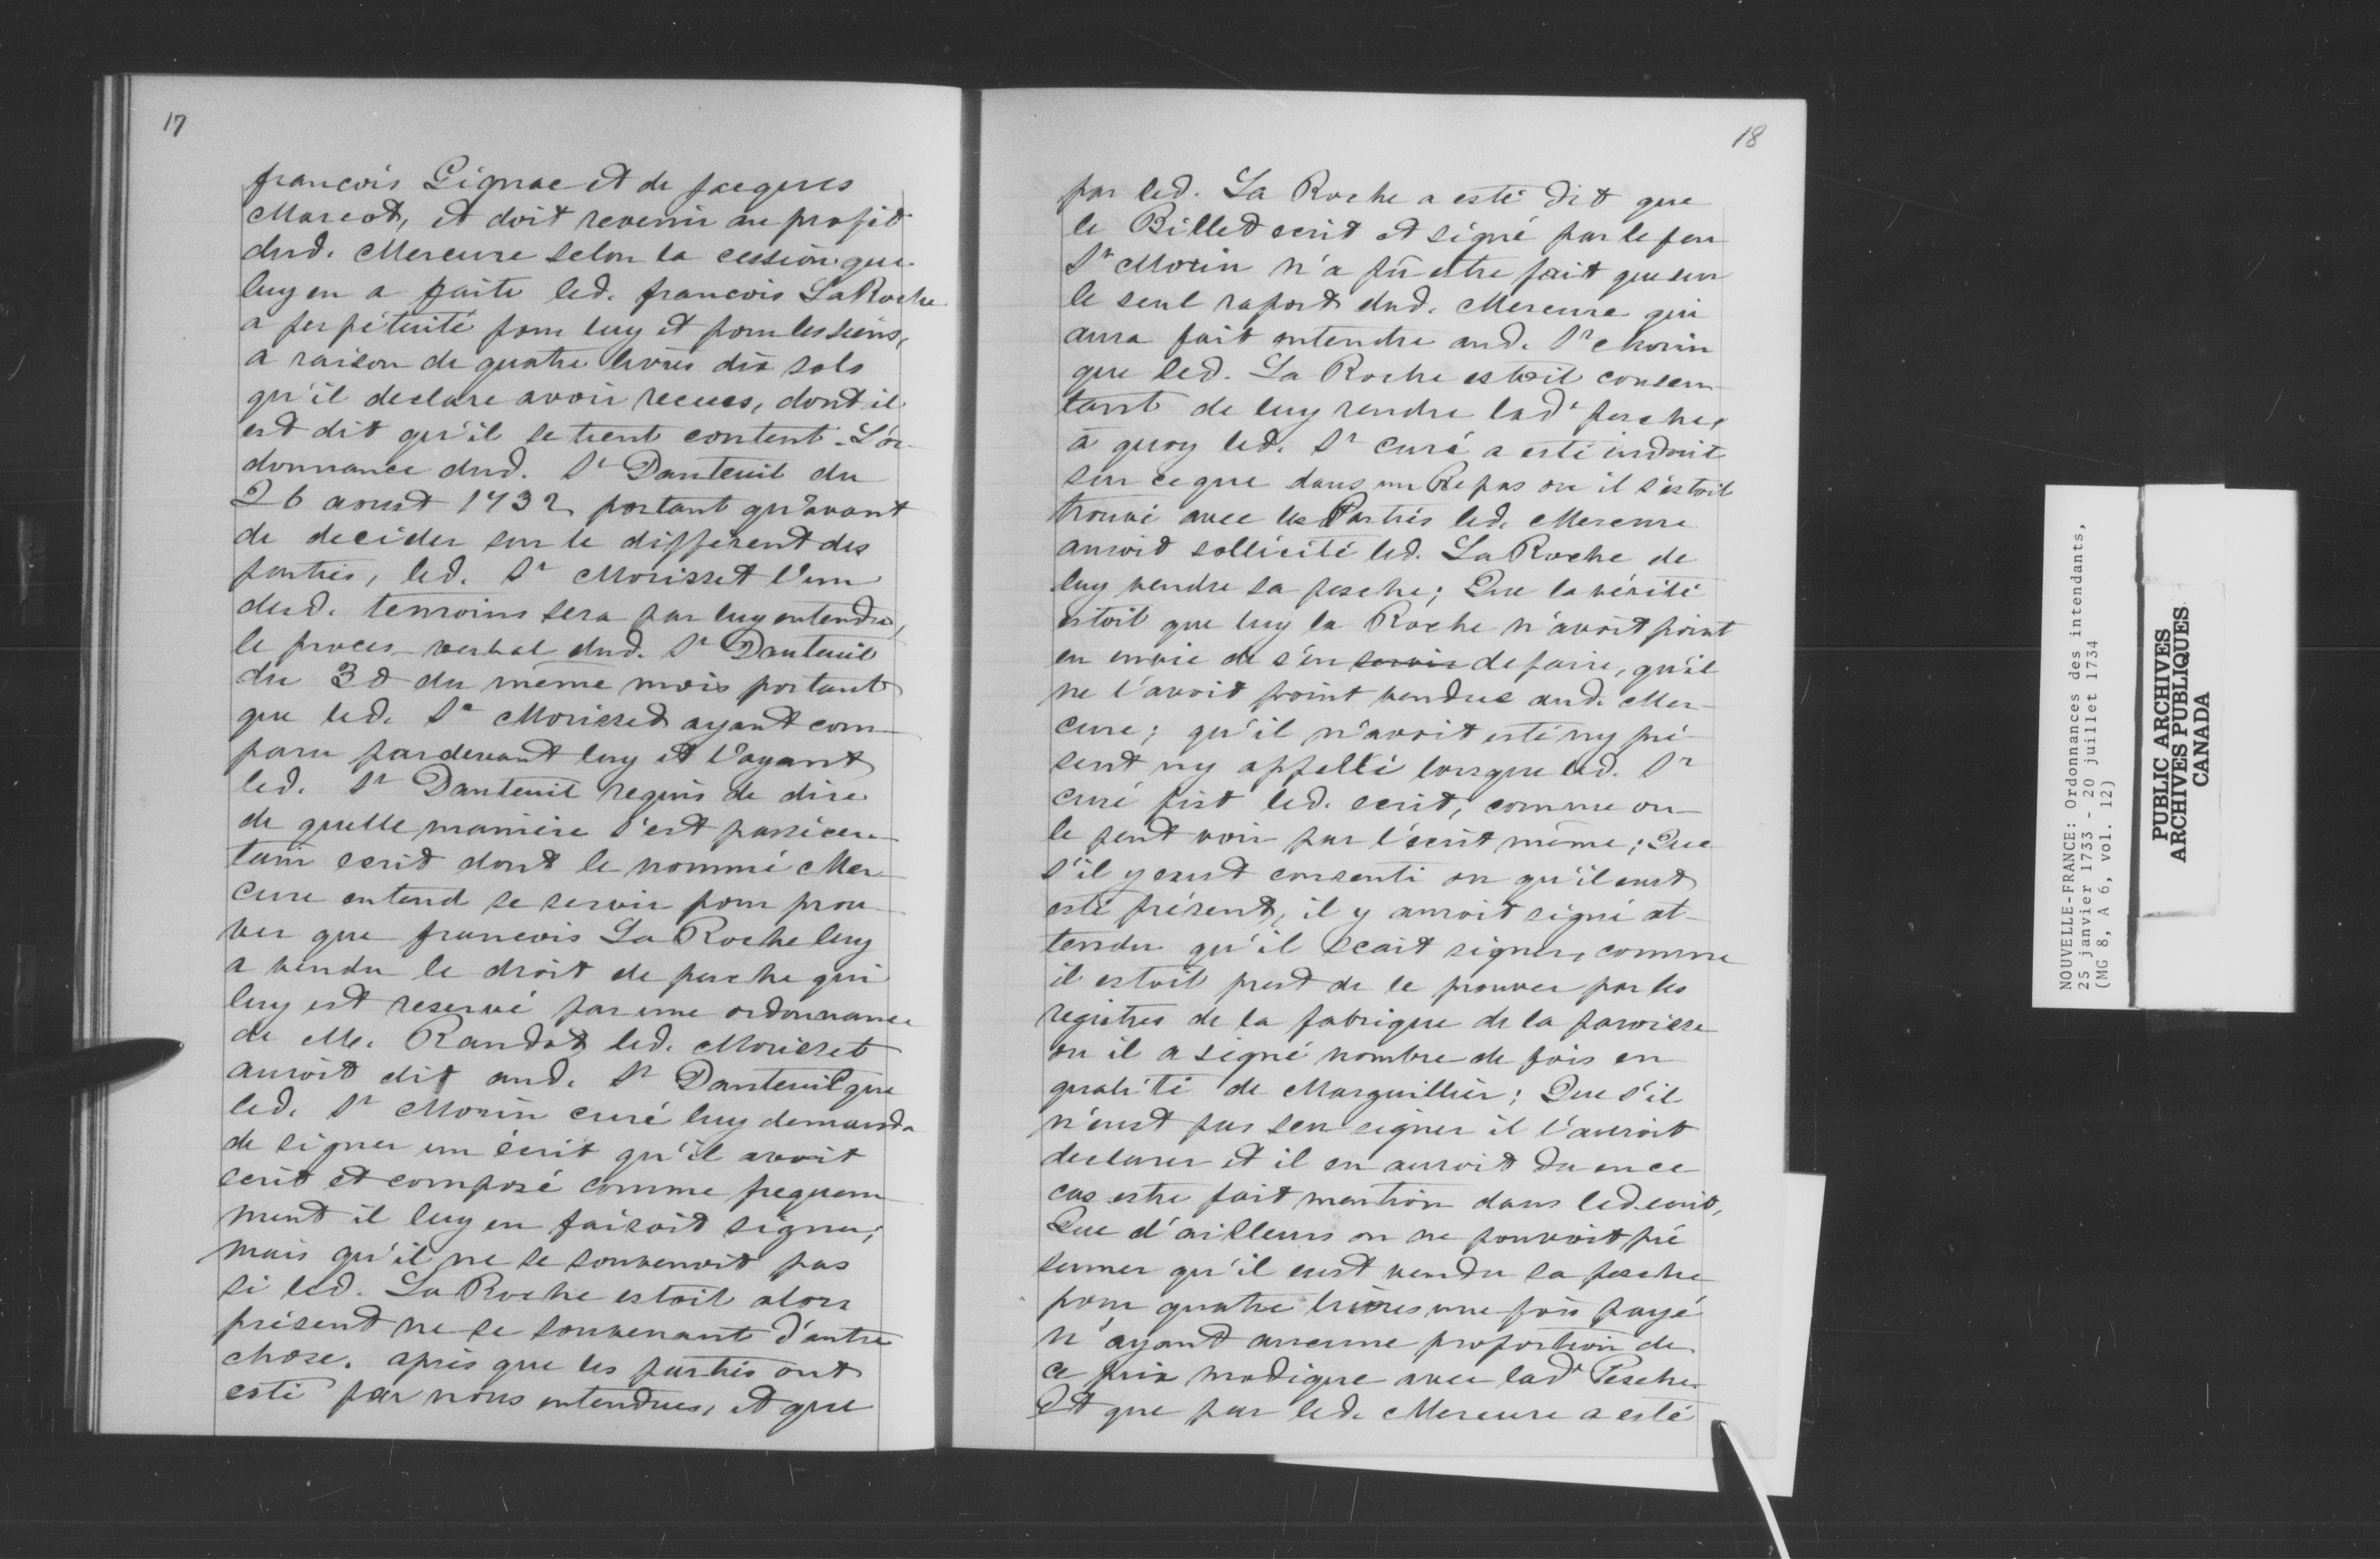 17
francois Gignac et de Jacques
Marcot, et doit revenir au profit
dud. Mercure selon la cession que
luy en a faite led. francois LaRoche
a perpétuité pour luy et pour les siens,
a raison de quatre livres dix sols
qu'il declare avoir recues, dont il
est dit qu'il se tient content. L'or-
donnance dud. Sr Dauteuil du
26 aoust 1732 portant qu'avant
de decider sur le different des
parties, led. Sr Morisset l'un
desd. temoins sera par luy entendu,
le proces-verbal dud. Sr Dauteuil
du 30 du même mois portant
que led. Sr Morisset ayant com-
paru pardevant luy et l'ayant
led. Sr Dauteuil requis de dire
de quelle manière s'est passé cer-
tain ecrit dont le nommé Mer-
cure entend se servir pour prou-
ver que francois La Roche luy
a vendu le droit de pesche qui
luy est reservé par une ordonnance
de M. Raudot led. Morisset
auroit dit aud. Sr Dauteuil que
led. Sr Morin curé luy demanda
de signer un écrit qu'il avoit
ecrit et composé comme frequem-
ment il luy en faisoit signer;
mais qu'il ne se souvenoit pas
si led. La Roche estoit alors
présent ne se souvenant d'autre
chose. après que les parties ont
esté par nous entendues, et que
18
par led. La Roche a esté dit que
le Billet ecrit et signé par le feu
Sr Morin n'a pû estre fait que sur
le seul raport dud. Mercure qui
aura fait entendre aud. Sr Morin
que led. La Roche estoit consen-
tant de luy rendre lade pesche,
à quoy led. Sr curé a esté induit
sur ce que dans un Repas ou il s'estoit
trouvé avec les Parties led. Mercure
auroit sollicité led. La Roche de
luy vendre sa pesche; Que la vérité
estoit que luy la Roche n'avoit point
eu envie de s'en servir defaire, qu'il
ne l'avoit point vendue aud. Mer-
cure; qu'il n'avoit esté ny pré-
sent ny appellé lorsque led. Sr
curé fist led. ecrit, comme on
le peut voir par l'écrit même; Que
s'il y eust consenti ou qu'il eust
esté présent, il y auroit signé at-
tendu qu'il scait signer, comme
il estoit prest de le prouver par les
registres de la fabrique de la paroisse
ou il a signé nombre de fois en
qualité de Marguillier; Que s'il
n'eust pas seu signer il l'auroit
declarer et il en auroit du en ce
cas estre fait mention dans led. ecrit,
Que d'ailleurs on ne pouvoit pré
sumer qu'il eust vendu sa pesche
pour quatre livres une fois payé
n'ayant aucune proportion de
ce prix modique avec lade Pesche.
Et que par led. Mercure a esté
NOUVELLE-FRANCE: Ordonnances des intendants,
25 janvier 1733 - 20 juillet 1734
(MG 8, A 6, vol. 12)
PUBLIC ARCHIVES
ARCHIVES PUBLIQUES
CANADA